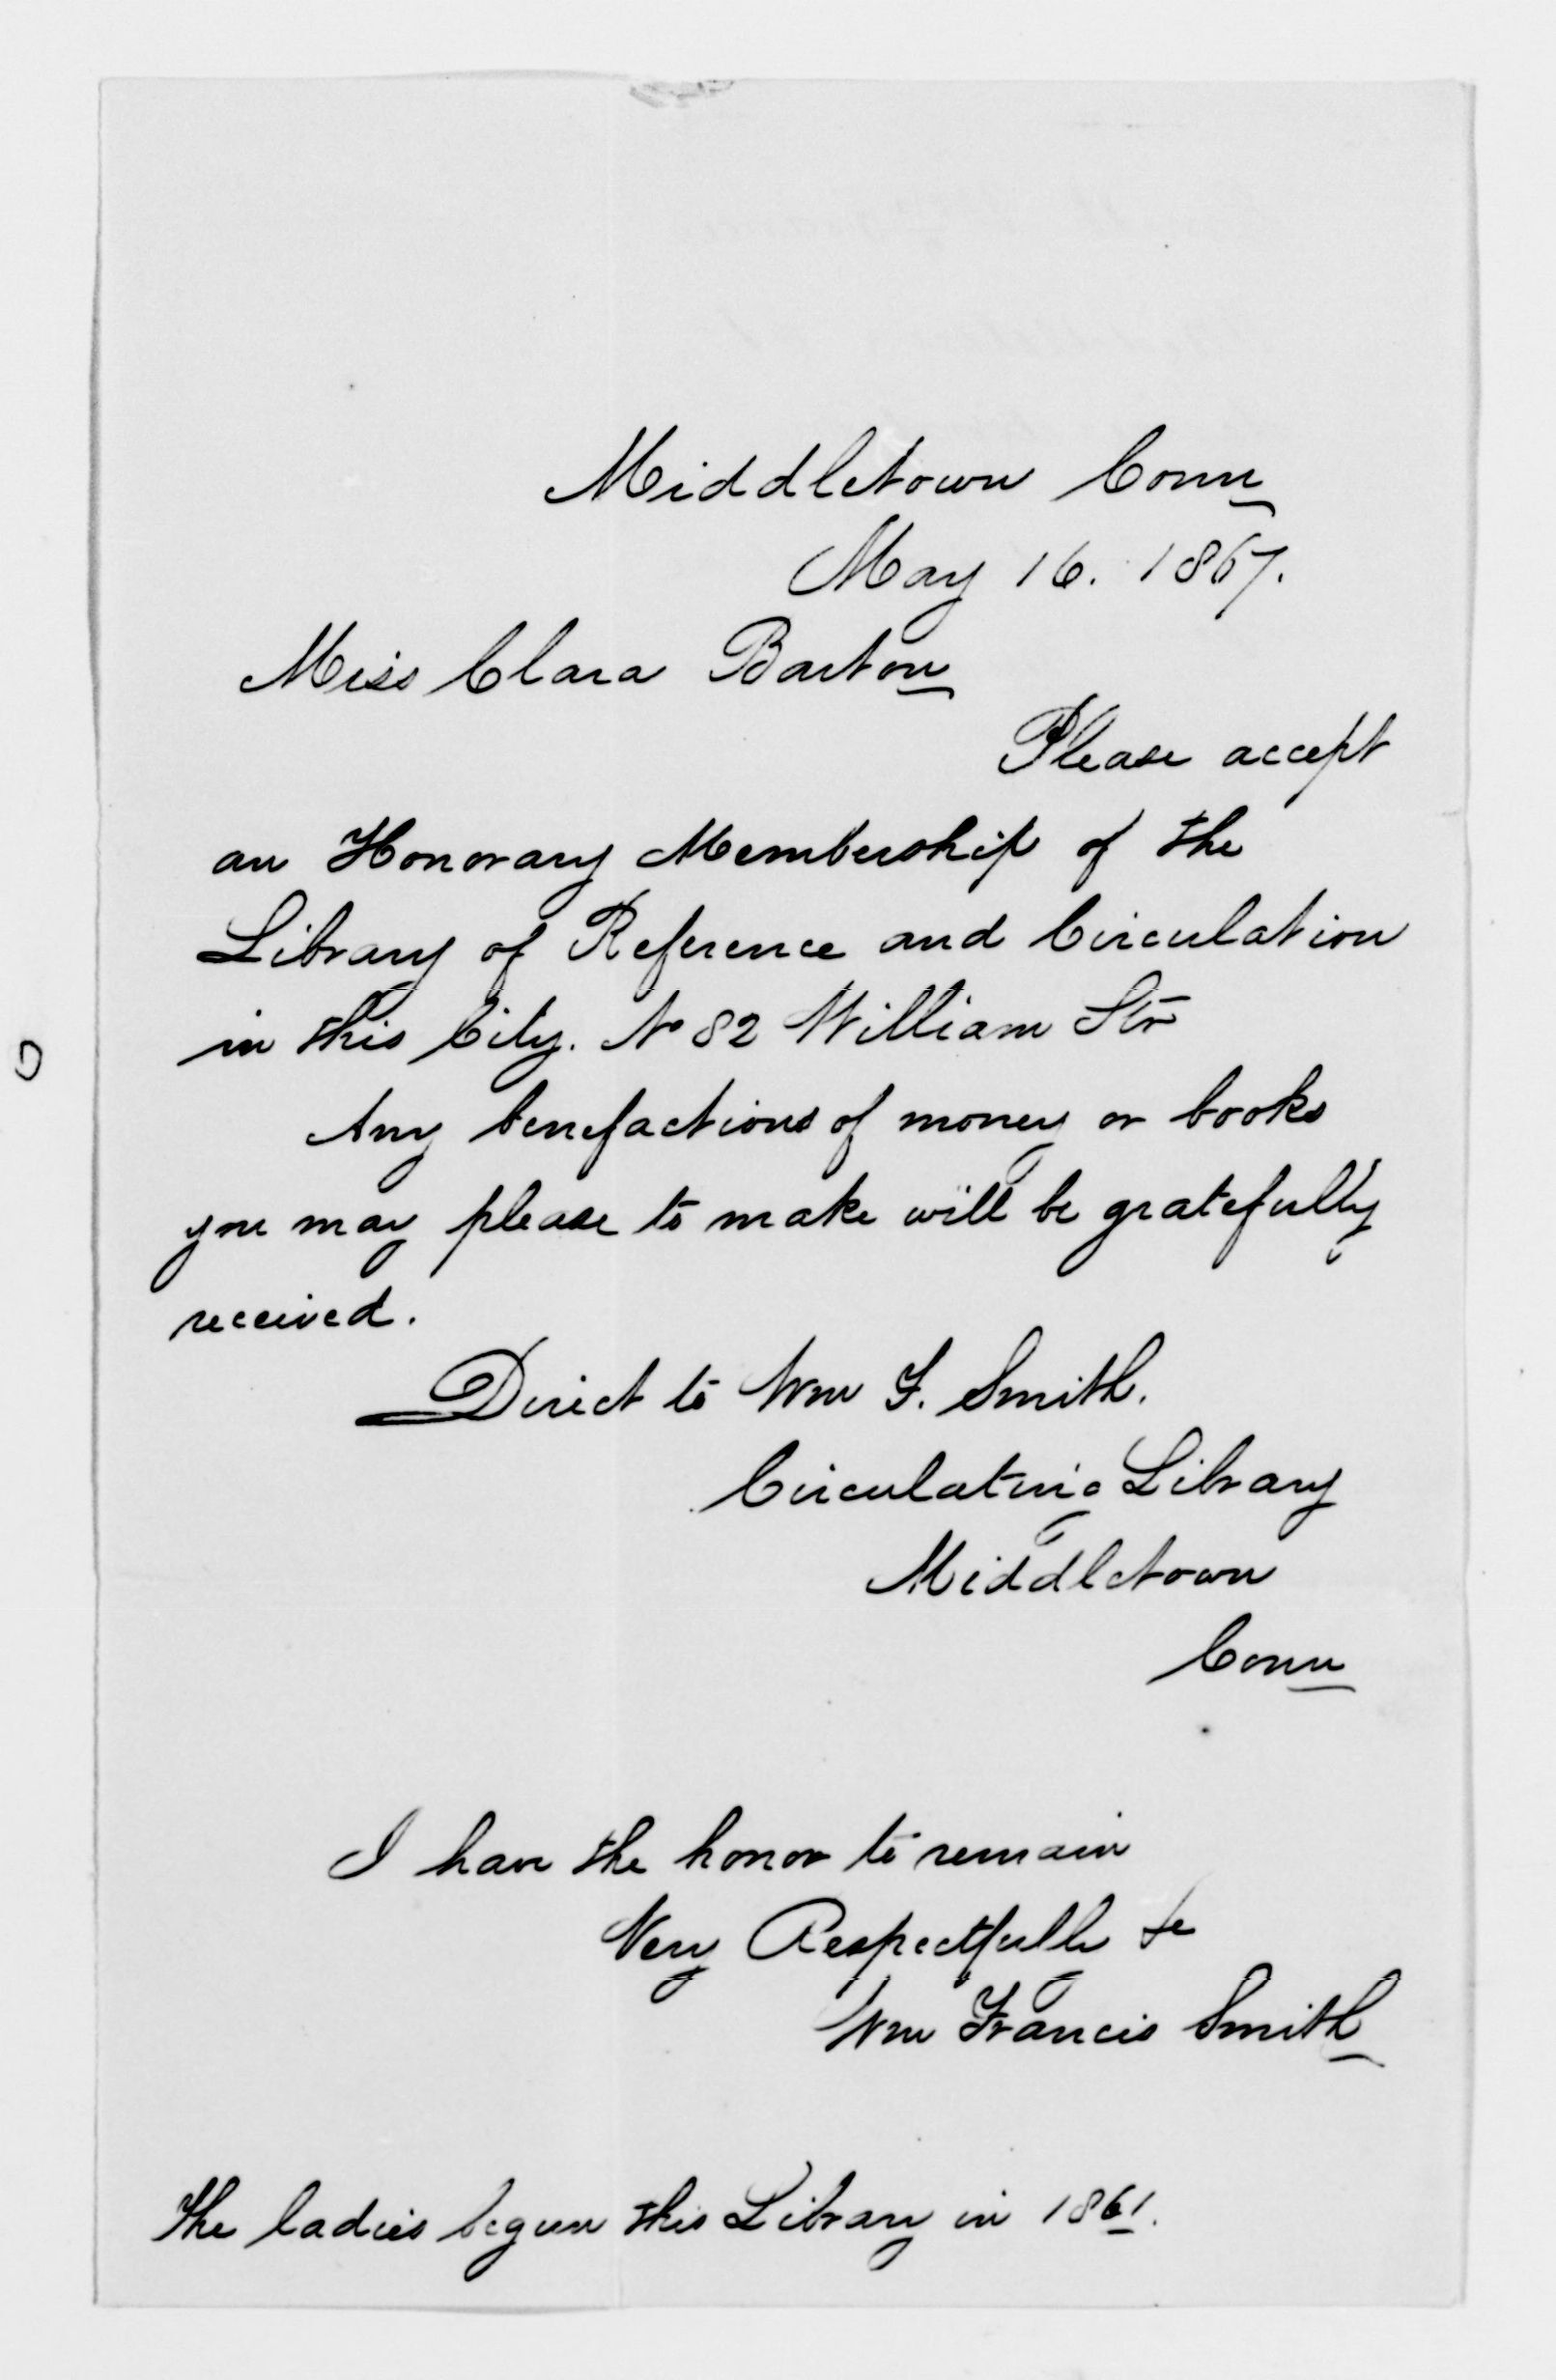 Middletown Conn
May 16. 1867.
Miss Clara Barton
Please accept
an Honorary Membership of the
Library of Reference and Circulation
in this City. No 82 William Str
Any benefactions of money or books
you may please to make will be gratefully
received.
Direct to Wm F. Smith.
Circulating Library
Middletown
Conn
I have the honor to remain
Very Respectfully &c
Wm Francis Smith
The ladies begun this Library in 1861.